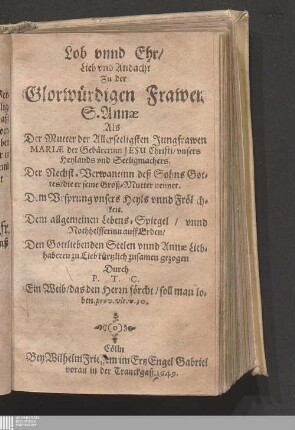 Lob vnnd Ehr/
Lieb vnd Andacht
Zu der
Glorwürdigen Frawen
S. Annæ
Als
Der Mutter der Allerseeligsten Jungfrawen
MARIÆ der Gebärerinn JESU Christi/ vnsers
Heylands vnd Seeligmachers.
Der Nechst-Verwantinn deß Sohns Got-
tes/ die er seine Groß-Mutter nennet.
Dem Vrsprung vnsers Heyls vnnd Fröl ch-
keit.
Dem allgemeinen Lebens-Spiegel/ vnnd
Nothhelfferinn auff Erden/
Den Gottliebenden Seelen vnnd Annæ Lieb-
haberen zu Lieb kürtzlich zusamen gezogen
Durch
P. T. C.
Ein Weib/ das den Herrn förcht/ soll man lo-
ben. prov. vlt. v. 30.
Cölln
Bey Wilhelm im Ertz Engel Gabriel
voran in der Tranckgaß. 1649.